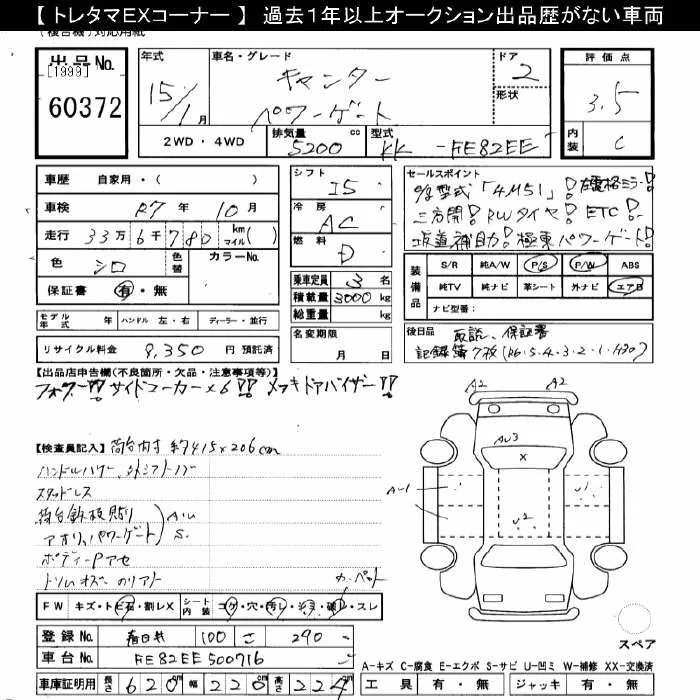 【 トレタマEXコーナー 】 過去1年以上オークション出品歴がない車両
出品No.
[1999]
60372
年式
15/1月
車名・グレード
キャンター
パワーゲート
ドア
2
形状
評価点
3.5
内装
C
2WD・4WD
排気量
5200
cc
型式
KK -FE82EE
車歴 自家用・( )
車検 R7年 10月
走行 33万6千780 km マイル( )
色 シロ
色替
カラーNo.
保証書 有・無
シフト
I5
冷房
AC
燃料
D
乗車定員 3名
積載量 3000kg
総重量 kg
名変期限
月 日
セールスポイント
型式「4M51」! 左電格ミラー!
三方開! RWタイヤ! ETC!
坂道補助! 極東パワーゲート!
装備品
S/R 純A/W P/S P/W ABS
純TV 純ナビ 革シート 外ナビ エアB
ナビ型番:
モデル年式 年 ハンドル 左・右 ディーラー・並行
リサイクル料金 9,350 円 預託済
後日品 取説、保証書
記録簿7枚(R6.5.4.3.2.1.H30)
【出品店申告欄(不良箇所・欠品・注意事項等)】
フォグ!! サイドマーカー×6!! メッキドアバイザー!!
【検査員記入】 荷台内寸 約415×206cm
スタッドレス
荷台鉄板貼り
アオリ、パワーゲート
AU
S.
ボディーPアセ
カーペット
FW キズ・トビ石・割レX
シート内装 コゲ・穴・汚レ・破レ・スレ
登録No. 春日井 100 さ 290 -
車台No. FE82EE500716
車庫証明用 長さ 620cm 幅 220cm 高さ 224cm
A2
A2
AU3
X
A-1
U2
U1
スペア
A-キズ C-腐食 E-エクボ S-サビ U-凹ミ W-補修 XX-交換済
工具 有・無 ジャッキ 有・無